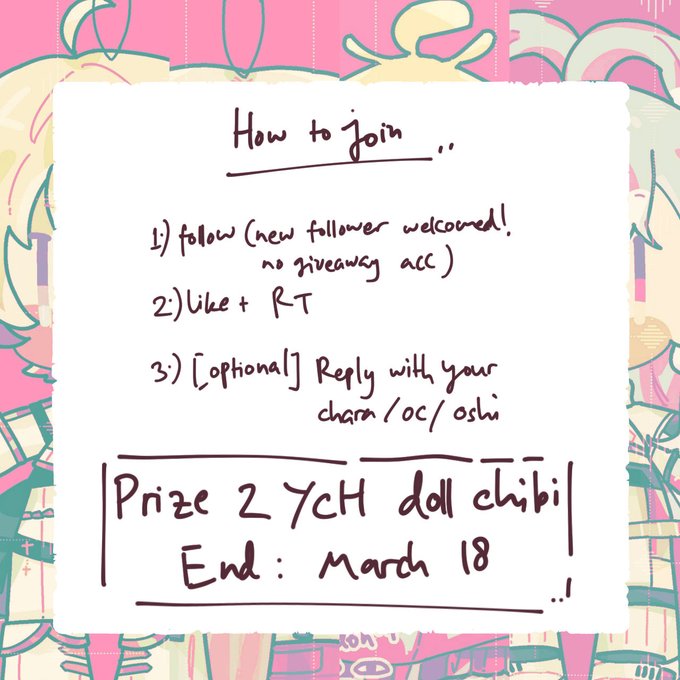 How to join ..
1:) follow (new follower welcomed!
no giveaway acc)
2:) like + RT
3:) [optional] Reply with your
chara / oc / oshi
Prize 2 YCH doll chibi
End: March 18